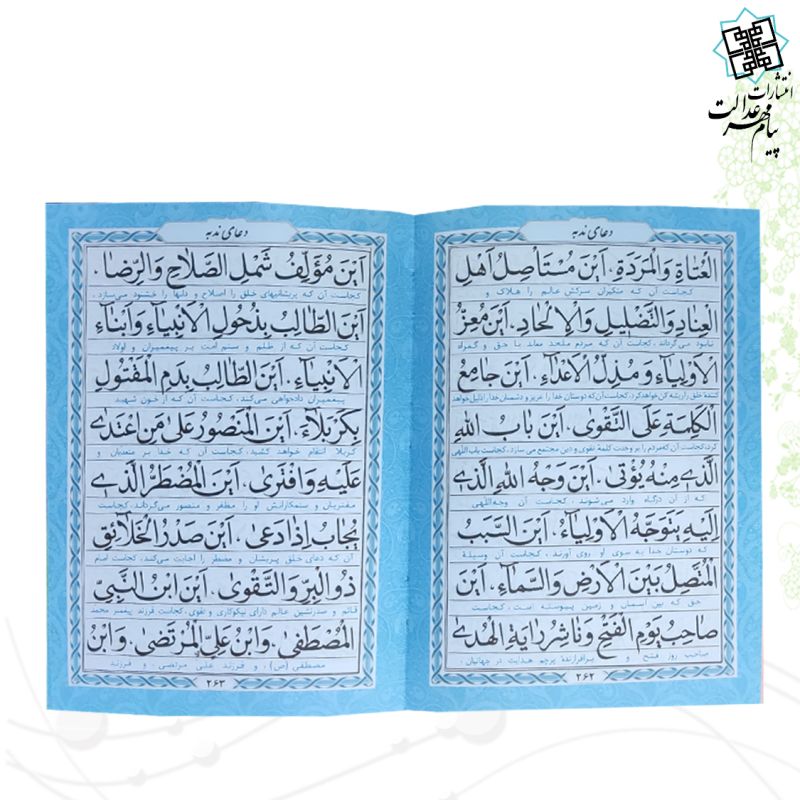 انتشارات
پیام مهر عدالت
دعای ندبه
الْعُتاةِ وَالْمَرَدَةِ، اَیْنَ مُسْتَاْصِلُ اَهْلِ
کجاست آن که متکبران سرکش عالم را هلاک و
الْعِنادِ وَالتَّضْلیلِ وَالْاِلْحادِ، اَیْنَ مُعِزُّ
نابود می‌گرداند، کجاست آن که مردم ملحد معاند با حق و گمراه
الْاَوْلِیاءِ وَ مُذِلُّ الْاَعْداءِ، اَیْنَ جامِعُ
کننده خلق را ریشه کن خواهد کرد، کجاست آن که دوستان خدا را عزیز و دشمنان خدا را ذلیل خواهد
الْکَلِمَةِ عَلَی التَّقْوی، اَیْنَ بابُ اللهِ
کرد، کجاست آن که مردم را بر وحدت کلمه تقوی و دین مجتمع می سازد، کجاست باب اللهی
الَّذی مِنْهُ یُؤْتی، اَیْنَ وَجْهُ اللهِ الَّذی
که از آن درگاه وارد می‌شوند، کجاست آن وجه‌اللهی
اِلَیْهِ یَتَوَجَّهُ الْاَوْلِیاءُ، اَیْنَ السَّبَبُ
که دوستان خدا به سوی او روی آورند، کجاست آن وسیلهٔ
الْمُتَّصِلُ بَیْنَ الْاَرْضِ وَالسَّماءِ، اَیْنَ
حق که بین آسمان و زمین پیوسته است، کجاست
صاحِبُ یَوْمِ الْفَتْحِ وَ ناشِرُ رایَةِ الْهُدی
صاحب روز فتح و برافرازندهٔ پرچم هدایت در جهانیان،
۲۶۲
دعای ندبه
اَیْنَ مُؤَلِّفُ شَمْلِ الصَّلاحِ وَالرِّضا،
کجاست آن که پریشانیهای خلق را اصلاح و دلها را خشنود می‌سازد،
اَیْنَ الطّالِبُ بِذُحُولِ الْاَنْبِیاءِ وَ اَبْناءِ
کجاست آن که از ظلم و ستم امت بر پیغمبران و اولاد
الْاَنْبِیاءِ، اَیْنَ الطّالِبُ بِدَمِ الْمَقْتُولِ
پیغمبران دادخواهی می‌کند، کجاست آن که از خون شهید
بِکَرْبَلاءَ، اَیْنَ الْمَنْصُورُ عَلی مَنِ اعْتَدی
کربلا انتقام خواهد کشید، کجاست آن که خدا بر متعدیان و
عَلَیْهِ وَافْتَری، اَیْنَ الْمُضْطَرُّ الَّذی
مفتریان و ستمکارانش او را مظفر و منصور می‌گرداند، کجاست
یُجابُ اِذا دَعی، اَیْنَ صَدْرُ الْخَلائِقِ
آن که دعای خلق پریشان و مضطر را اجابت می‌کند، کجاست امام
ذُو الْبِرِّ وَالتَّقْوی، اَیْنَ ابْنُ النَّبِیِّ
قائم و صدرنشین عالم دارای نیکوکاری و تقوی، کجاست فرزند پیغمبر محمد
الْمُصْطَفی، وَابْنُ عَلِیٍّ الْمُرْتَضی، وَابْنُ
مصطفی (ص)، و فرزند علی مرتضی، و فرزند
۲۶۳